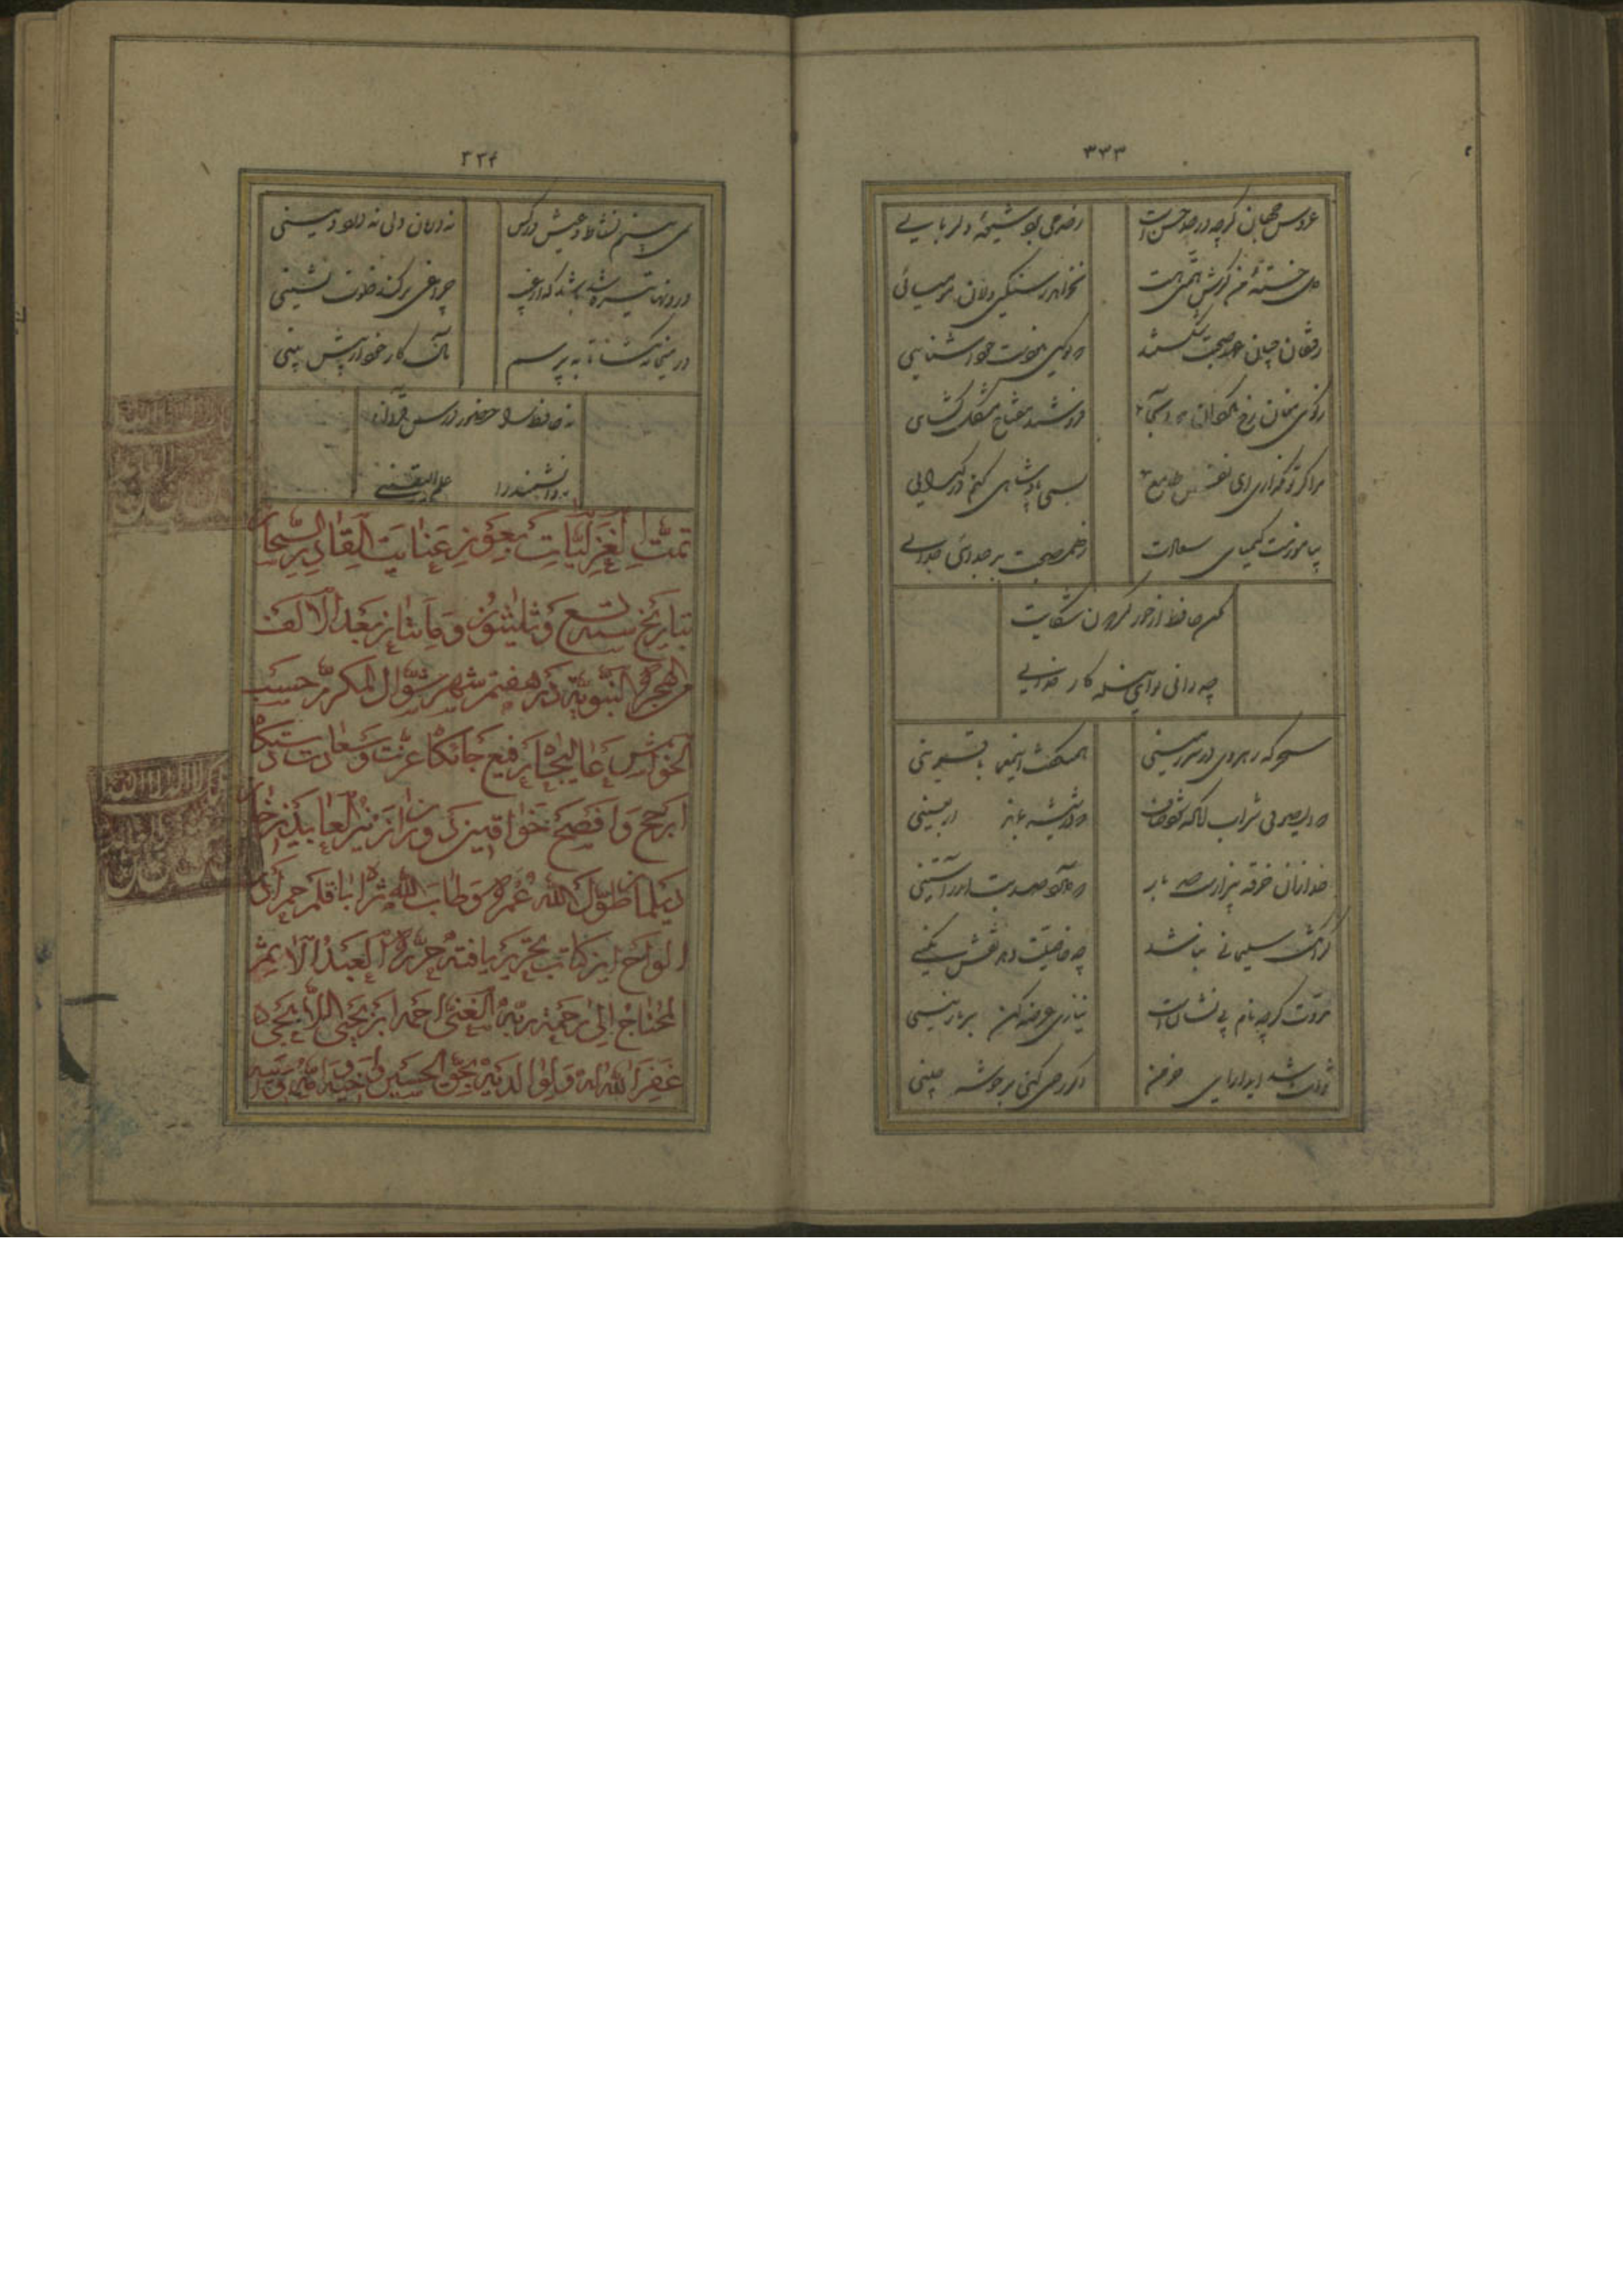 ۳۳۳
عروس جهان گرچه در حد حسنست ز حد می‌برد شیوهٔ دلربایی
دل خستهٔ من گرش همتی هست نخواهد ز سنگین دلان مومیائی
رفیقان چنان عهد صحبت شکستند که گویی نبودست خود آشنایی
ز کوی مغان رخ مگردان که آنجا فروشند مفتاح مشکل گشای
مرا گر تو بگذاری ای نفس طامع بسی پادشاهی کنم در گدایی
بیاموزمت کیمیای سعادت ز هم صحبت بد جدائی جدایی
مکن حافظ از جور گردون شکایت
چه دانی تو ای بنده کار خدایی
سحرگه رهروی در سرزمینی همی‌گفت این معما با قرینی
که ای صوفی شراب آنگه شود صاف که در شیشه بماند اربعینی
خدا زان خرقه بیزارست صد بار که صد بت باشد اندر آستینی
گر انگشت سلیمانی نباشد چه خاصیت دهد نقش نگینی
مروت گرچه نام بی نشان است نیازی عرضه کن بر نازنینی
ثوابت باشد ای دارای خرمن اگر رحمی کنی بر خوشه چینی
۳۳۴
نمی‌بینم نشاط و عیش در کس نه درمان دلی نه درد دینی
درونها تیره شد باشد که از غیب چراغی بر کند خلوت نشینی
در میخانه بنما تا بپرسم مآل کار خود از پیش بینی
نه حافظ را حضور درس قرآن
نه دانشمند را علم الیقینی
تمت الغزلیات بعون عنایت القادر السبحان
بتاریخ سنه تسع و ثلثون و ماتان بعد الالف
من الهجرة النبویة در هفتم شهر شوال المکرم حسب
الخواهش عالیجاه رفیع جایگاه عزت و سعادت دستگاه
ارجح و افصح خوانین دوران زین العابدین خان
طول الله عمره و طاب الله ثراه با قلم
الواح این کتاب تحریر یافته حرره العبد الاثیم
المحتاج الی رحمة ربه الغنی احمد ابن یحیی اللاهیجی
غفر الله له و لوالدیه بحق الحسین و اخیه و امه و بنیه